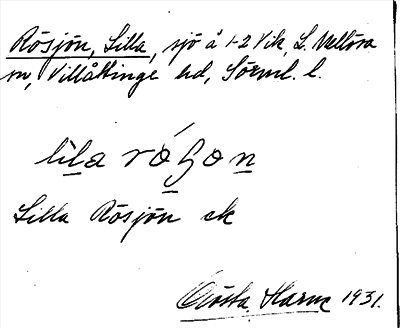 Rösjön, Lilla, sjö å 1-2 Vik, L. Mellösa
sn, Villåttinge hd, Sörml. l.
lila rögon
Lilla Rösjön ek
Gösta Harm 1931.